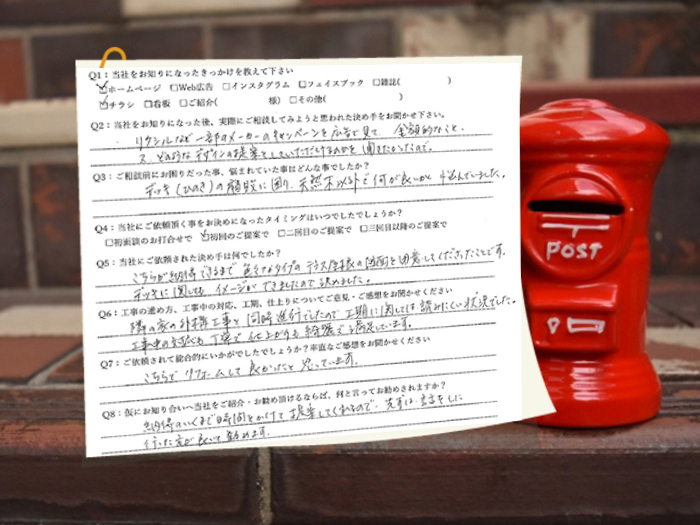 Q1：当社をお知りになったきっかけを教えて下さい
☑ホームページ □Web広告 □インスタグラム □フェイスブック □雑誌( )
☑チラシ □看板 □ご紹介( 様) □その他( )
Q2：当社をお知りになった後、実際にご相談してみようと思われた決め手をお聞かせ下さい。
リクシルなど一部のメーカーのキャンペーンを広告で見て、金額的なこと、
又、どのようなデザインの提案をしていただけるのかを聞きたかったので。
Q3：ご相談前にお困りだった事、悩まれていた事はどんな事でしたか？
デッキ(ひのき)の腐敗に困り、天然木以外で何が良いかと悩んでいました。
Q4：当社にご依頼頂く事をお決めになったタイミングはいつでしたでしょうか？
□初面談のお打合せで ☑初回のご提案で □二回目のご提案で □三回目以降のご提案で
Q5：当社にご依頼された決め手は何でしたか？
こちらが納得できるまで色々なタイプのテラス屋根の図面を用意してくださったことです。
デッキに関しても、イメージができましたので決めました。
Q6：工事の進め方、工事中の対応、工期、仕上りについてご意見・ご感想をお聞かせください
隣の家の外構工事と同時進行でしたので工期に関しては読みにくい状況でした。
工事中の対応も丁寧で、仕上がりも綺麗で満足しています。
Q7：ご依頼されて総合的にいかがでしたでしょうか？率直なご感想をお聞かせください
こちらでリフォームして良かったと思っています。
Q8：仮にお知り合いへ当社をご紹介・お勧め頂けるならば、何と言ってお勧めされますか？
納得のいくまで時間をかけて提案してくれるので、先ずは、話をしに
行った方が良いと勧めます。
POST